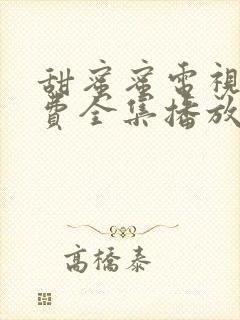 甜蜜蜜電視
費全集播放
高橋泰